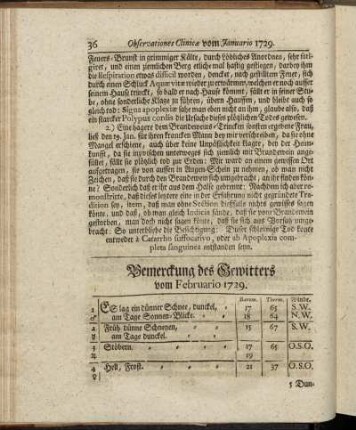 36 Observationes Clinicæ vom Januario 1729.
Feuers-Brunst in grimmiger Kälte, durch Löbliches Anordnen, sehr fati-
giret, und einen ziemlichen Berg etliche mal hastig gestiegen, darbey ihm
die Respiration etwas difficil worden, dencket, nach gestilltem Feuer, sich
durch einen Schluck Aquæ vitæ wieder zu erwärmen, welchen er noch ausser
seinem Hause trinckt, so bald er nach Hause kommt, fällt er in seiner Stu-
be, ohne sonderliche Klage zu führen, übern Hauffen, und bleibt auch so
gleich tod: Signa apoplexiæ sahe man eben nicht an ihm, glaube also, daß
ein starcker Polypus cordis die Ursache dieses plötzlichen Todes gewesen.
2.) Eine hagere dem Brandtewein-Trincken sonsten ergebene Frau,
ließ den 19. Jan. für ihren krancken Mann bey mir verschreiben, da sie ohne
Mangel erschiene, auch über keine Unpäßlichkeit klagte, bey der Heim-
kunfft, da sie inzwischen unterwegs sich ziemlich mit Brandtewein ange-
füllet, fällt sie plötzlich tod zur Erden: Mir ward an einem gewissen Ort
aufgetragen, sie von aussen in Augen-Schein zu nehmen, ob man nicht
Zeichen, daß sie durch den Brandtewein sich umgebracht hätte, an ihr finden kön-
ne? Sonderlich daß er ihr aus dem Halse gebrennt: Nachdem ich aber re-
monstrirte, daß dieses letztere eine in der Erfahrung nicht gegründete Tra-
dition sey, item, daß man ohne Section dießfalls nichts gewisses sagen
könne, und daß, ob man gleich Indicia fände, daß sie vom Brandtewein
gestorben, man doch nicht sagen könne, daß sie sich aus Vorsatz umge-
bracht: So unterbliebe die Besichtigung: Dieser schleunige Tod konte
entweder à Catarrho suffocativo, oder ab Apoplexia com-
pleta sanguinea entstanden seyn.
Bemerckung des Gewitters
vom Februario 1729.
Barom. Therm. Winde.
1 ES lag ein dünner Schnee, dunckel, 17 65 S.W.
am Tage Sonnen-Blicke. 18 64 N.W.
2 Früh dünne Schneyen, 15 67 S.W.
am Tage dunckel.
3 Stöbern. 17 65 O.S.O.
19
4 Hell, Frost. 21 37 O.S.O.
5 Dun-